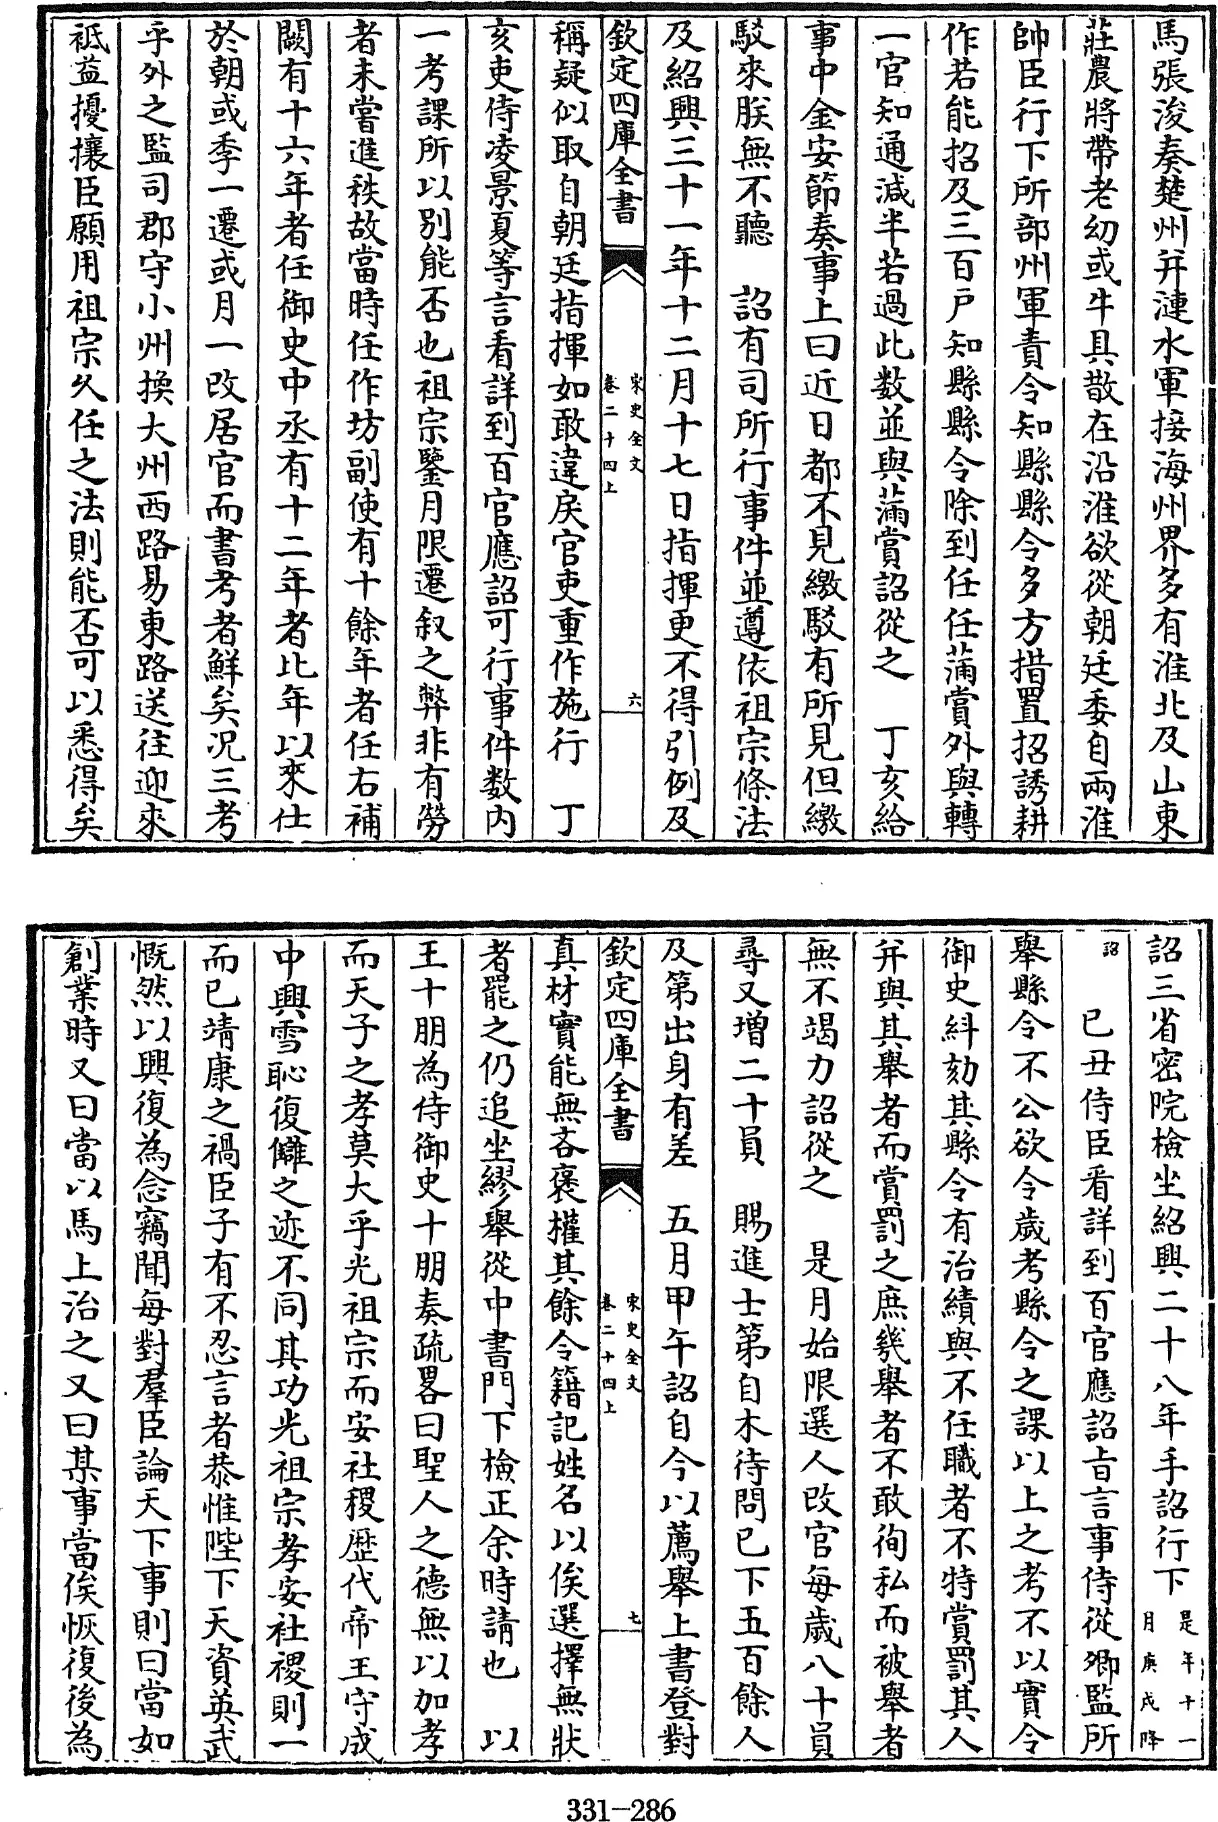 馬張浚奏楚州并漣水軍接海州界多有淮北及山東
莊農將帶老幼或牛具散在沿淮欲從朝廷委自兩淮
帥臣行下所部州軍責令知縣縣令多方措置招誘耕
作若能招及三百戶知縣縣令除到任任滿賞外與轉
一官知通減半若過此數並與滿賞詔從之　丁亥給
事中金安節奏事上曰近日都不見繳駁有所見但繳
駁來朕無不聽　詔有司所行事件並遵依祖宗條法
及紹興三十一年十二月十七日指揮更不得引例及
欽定四庫全書
宋史全文
卷二十四上
六
稱疑似取自朝廷指揮如敢違戾官吏重作施行　丁
亥吏侍凌景夏等言看詳到百官應詔可行事件数内
一考課所以別能否也祖宗鑒月限遷叙之弊非有勞
者未嘗進秩故當時任作坊副使有十餘年者任右補
闕有十六年者任御史中丞有十二年者比年以來仕
於朝或季一遷或月一改居官而書考者鮮矣况三考
乎外之監司郡守小州換大州西路易東路送往迎來
祗益擾攘臣願用祖宗久任之法則能否可以悉得矣
詔三省密院檢坐紹興二十八年手詔行下是年十一月庚戌降
詔　已丑侍臣看詳到百官應詔㫖言事侍從卿監所
舉縣令不公欲令歲考縣令之課以上之考不以實令
御史糾劾其縣令有治績與不任職者不特賞罰其人
并與其舉者而賞罰之庶幾舉者不敢徇私而被舉者
無不竭力詔從之　是月始限選人改官每歲八十員
尋又增二十員　賜進士第自木待問已下五百餘人
及第出身有差　五月甲午詔自今以薦舉上書登對
欽定四庫全書
宋史全文
卷二十四上
七
真材實能無吝褒權其餘令籍記姓名以俟選擇無狀
者罷之仍追坐繆舉從中書門下檢正余時請也　以
王十朋為侍御史十朋奏疏畧曰聖人之德無以加孝
而天子之孝莫大乎光祖宗而安社稷歷代帝王守成
中興雪恥復讎之迹不同其功光祖宗孝安社稷則一
而已靖康之禍臣子有不忍言者恭惟陛下天資英武
慨然以興復為念竊聞每對羣臣論天下事則曰當如
創業時又曰當以馬上治之又曰某事當俟恢復後為
331-286